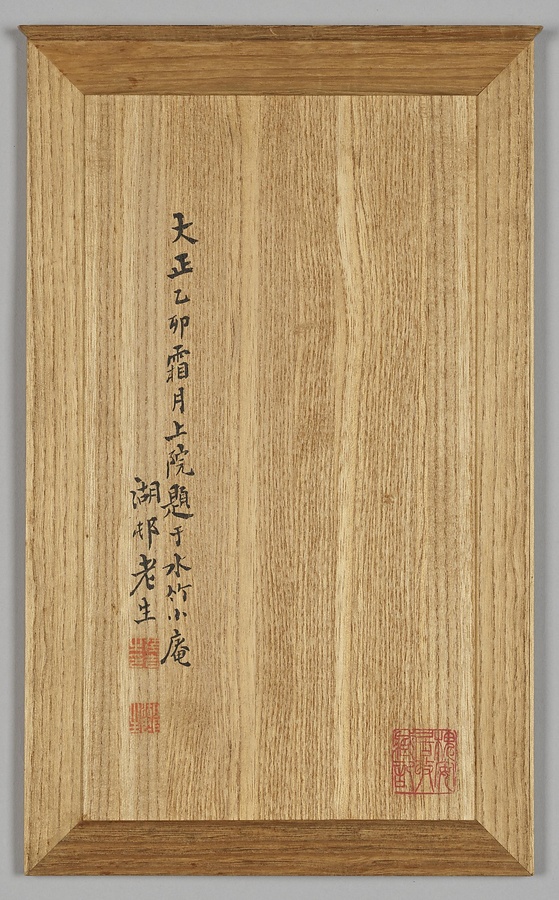 大正乙卯霜月上院題于水竹小庵
湖邨老生